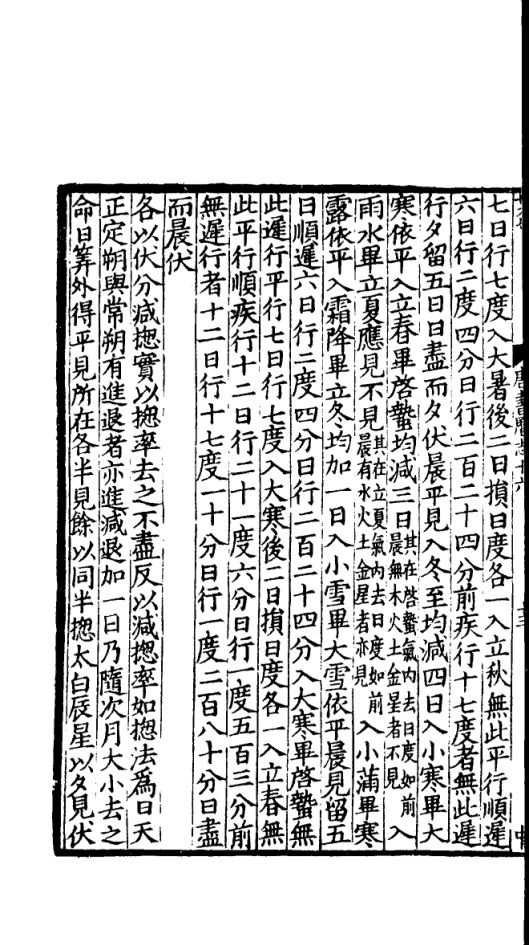 七日行七度入大暑後二日損日度各一入立秋無此平行順遲
六日行二度四分日行二百二十四分前疾行十七度者無此遲
行夕留五日日盡而夕伏晨平見入冬至均減四日入小寒畢大
寒依平入立春畢啓蟄均減三日其在啓蟄氣内去日度如前晨無木火土金星者不見入
雨水畢立夏應見不見其在立夏氣内去日度如前晨有水火土金星者亦見入小滿畢寒
露依平入霜降畢立冬均加一日入小雪畢大雪依平晨見留五
日順遲六日行二度四分日行二百二十四分入大寒畢啓蟄無
此遲行平行七日行七度入大寒後二日損日度各一入立春無
此平行順疾行十二日行二十一度六分日行一度五百三分前
無遲行者十二日行十七度一十分日行一度二百八十分日盡
而晨伏
各以伏分減揔實以揔率去之不盡反以減揔率如揔法爲日天
正定朔與常朔有進退者亦進減退加一日乃隨次月大小去之
命日筭外得平見所在各半見餘以同半揔太白辰星以夕見伏